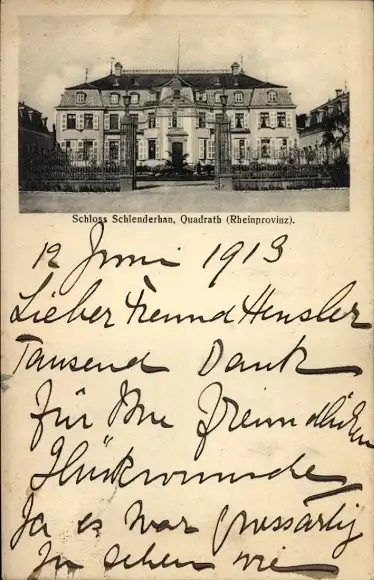 Schloss Schlenderhan, Quadrath (Rheinprovinz).
12 Juni 1913
Lieber Freund Hensler
Tausend Dank
für Ihre freundlichen
Glückwünsche
Ja es war grossartig
zu sehen wie